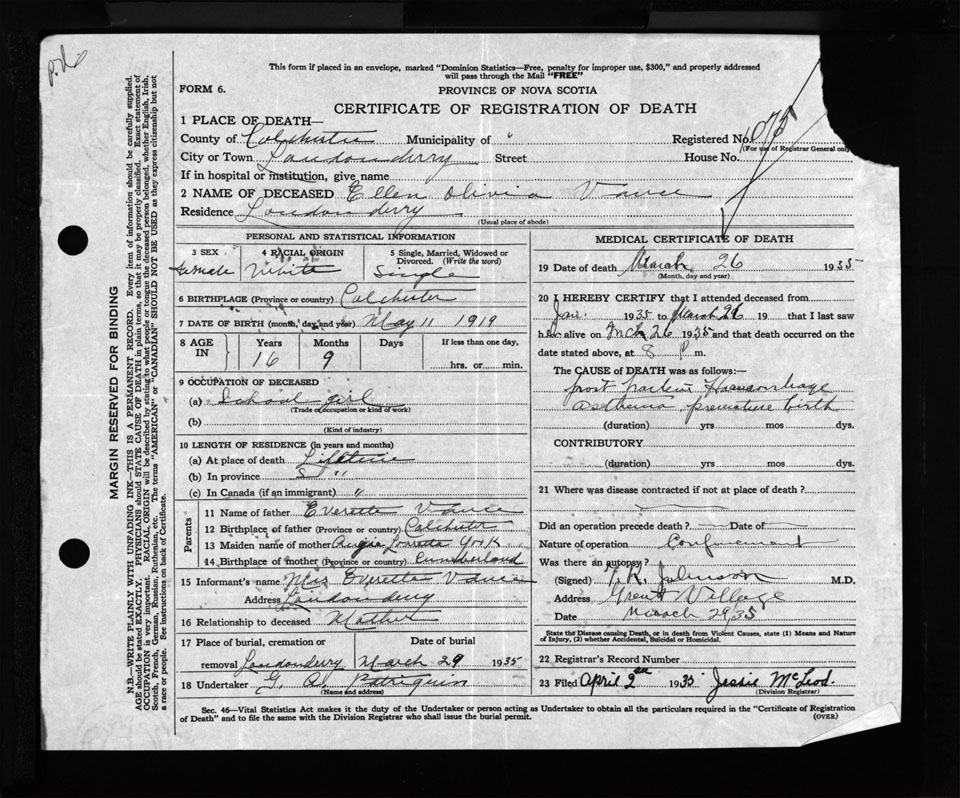 This form if placed in an envelope, marked "Dominion Statistics—Free, penalty for improper use, $300," and properly addressed
will pass through the Mail "FREE"
FORM 6.
PROVINCE OF NOVA SCOTIA
CERTIFICATE OF REGISTRATION OF DEATH
1 PLACE OF DEATH—
County of Colchester Municipality of " Registered No. 1075
(For use of Registrar General only)
City or Town Londonderry Street House No.
If in hospital or institution, give name
2 NAME OF DECEASED Ellen Olivia Vance
Residence Londonderry
(Usual place of abode)
PERSONAL AND STATISTICAL INFORMATION
3 SEX 4 RACIAL ORIGIN 5 Single, Married, Widowed or
Divorced. (Write the word)
Female White Single
6 BIRTHPLACE (Province or country) Colchester
7 DATE OF BIRTH (month, day and year) May 11 1919
8 AGE IN Years Months Days If less than one day,
16 9 hrs. or min.
9 OCCUPATION OF DECEASED
(a) School girl
(Trade or occupation or kind of work)
(b)
(Kind of industry)
10 LENGTH OF RESIDENCE (in years and months)
(a) At place of death Lifetime
(b) In province "
(c) In Canada (if an immigrant) "
Parents
11 Name of father Everette Vance
12 Birthplace of father (Province or country) Colchester
13 Maiden name of mother Loretta York
14 Birthplace of mother (Province or country) Cumberland
15 Informant's name Mrs Everette Vance
Address Londonderry
16 Relationship to deceased Mother
17 Place of burial, cremation or Date of burial
removal Londonderry March 29 1935
18 Undertaker G. A. Patriquin
(Name and address)
MEDICAL CERTIFICATE OF DEATH
19 Date of death March 26 1935
(Month, day and year)
20 I HEREBY CERTIFY that I attended deceased from
Jan. 1935 to March 26 19 that I last saw
her alive on Mch 26 1935 and that death occurred on the
date stated above, at 8 P m.
The CAUSE OF DEATH was as follows:—
post partum Haemorrhage
asthma premature birth
(duration) yrs mos dys.
CONTRIBUTORY
(duration) yrs. mos. dys.
21 Where was disease contracted if not at place of death?
Did an operation precede death? Date of
Nature of operation Confinement
Was there an autopsy?
(Signed) Johnson M.D.
Address Great Village
Date March 29/35
State the Disease causing Death, or in death from Violent Causes, state (1) Means and Nature
of Injury, (2) whether Accidental, Suicidal or Homicidal.
22 Registrar's Record Number
23 Filed April 2nd 1935 Jessie McLeod.
(Division Registrar)
Sec. 46—Vital Statistics Act makes it the duty of the Undertaker or person acting as Undertaker to obtain all the particulars required in the "Certificate of Registration
of Death" and to file the same with the Division Registrar who shall issue the burial permit. (OVER)
MARGIN RESERVED FOR BINDING
N.B.—WRITE PLAINLY WITH UNFADING INK—THIS IS A PERMANENT RECORD. Every item of information should be carefully supplied.
AGE should be stated EXACTLY. PHYSICIANS should STATE CAUSE OF DEATH in plain terms, so that it may be properly classified. Exact statement of
OCCUPATION is very important. RACIAL ORIGIN will be described by stating to what people or tongue the deceased person belonged, whether English, Irish,
Scotch, French, German, Russian, Ruthenian, etc. The terms "AMERICAN" or "CANADIAN" SHOULD NOT BE USED as they express citizenship but not
a race or people. See instructions on back of Certificate.